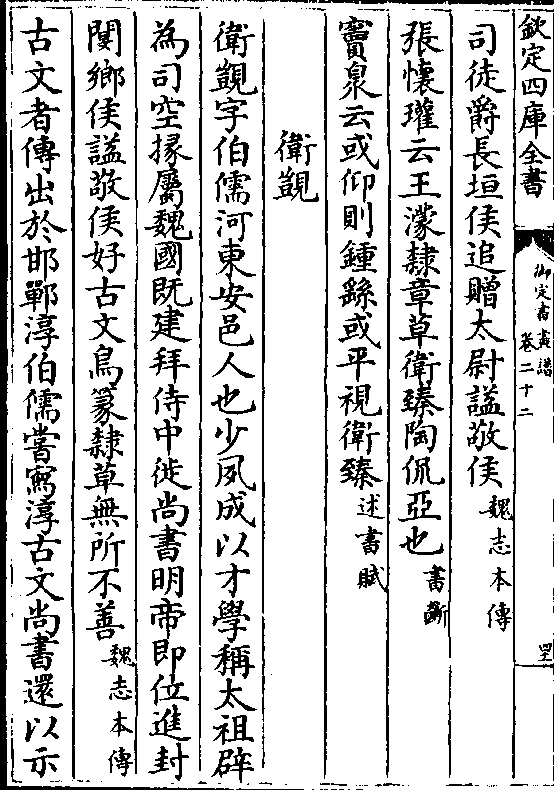 欽定四庫全書
御定書畫譜
卷二十二
司徒爵長垣侯追贈太尉諡敬侯魏志本傳
張懷瓘云王濛隸章草衛臻陶侃亞也書斷
竇泉云或仰則鍾繇或平視衛臻述書賦
衛覬
衛覬字伯儒河東安邑人也少夙成以才學稱太祖辟
為司空掾屬魏國既建拜侍中徙尚書明帝即位進封
閿鄉侯諡敬侯好古文鳥篆隸草無所不善魏志本傳
古文者傳出於邯鄲淳伯儒嘗寫淳古文尚書還以示